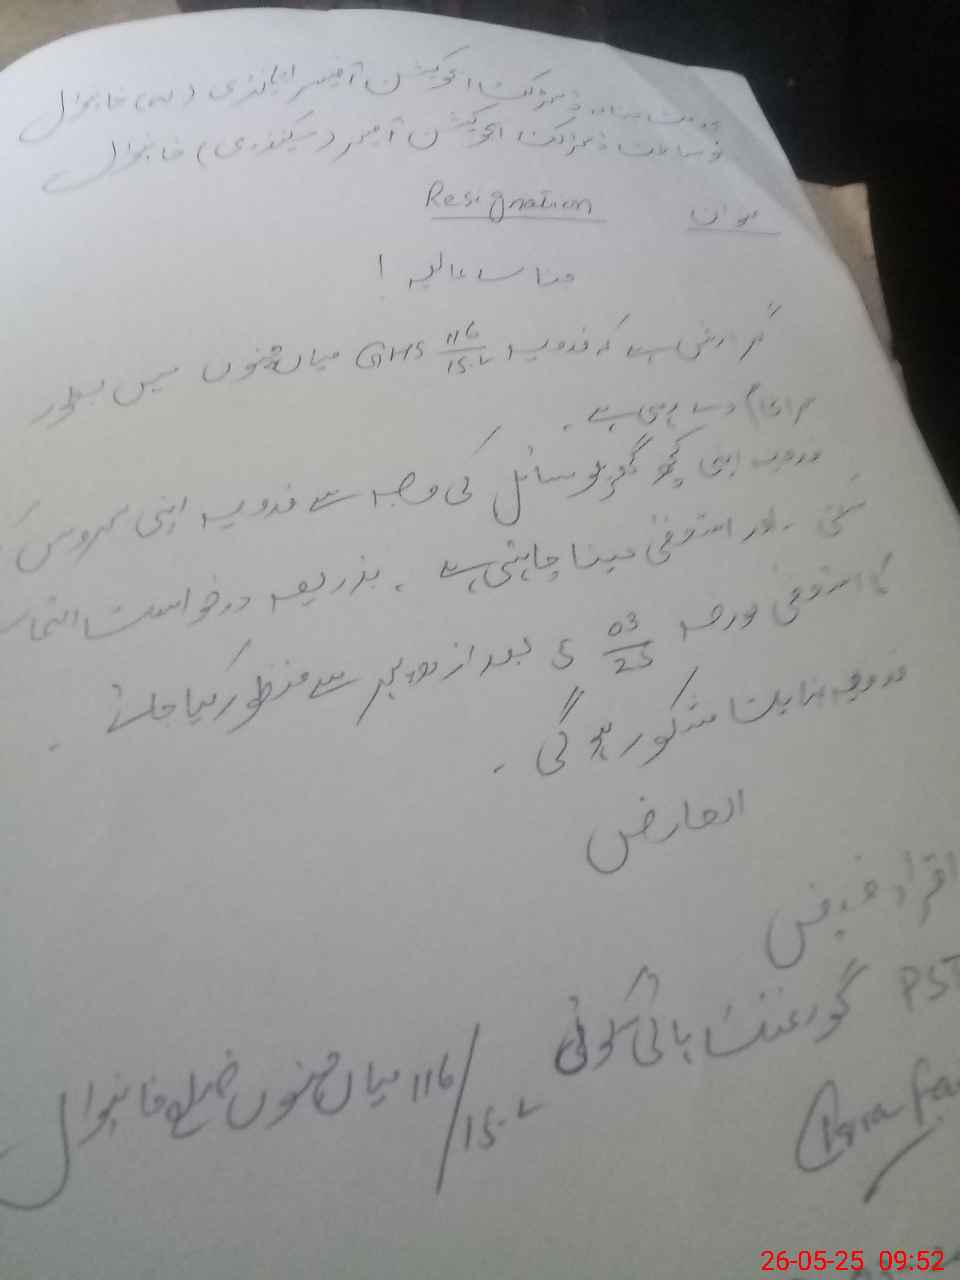 بخدمت جناب ڈسٹرکٹ ایجوکیشن آفیسر ایلیمنٹری (     ) خانیوال
بوساطت ڈسٹرکٹ ایجوکیشن آفیسر (سیکنڈری) خانیوال
عنوان Resignation
جناب عالیہ !
گزارش ہے کہ فدویہ GHS 116/15-L میاں چنوں میں بطور
سر انجام دے رہی ہے ۔
فدویہ اپنی کچھ گھریلو مسائل کی وجہ سے فدویہ اپنی سروس
سکتی ۔ اور استعفیٰ دینا چاہتی ہے ۔ بذریعہ درخواست التماس
کا استعفیٰ مورخہ 5 03/25 بعد از دوپہر سے منظور کیا جائے ۔
فدویہ نہایت مشکور ہو گی ۔
العارض
اقراء فیض
PST گورنمنٹ ہائی سکول
116/15-L میاں چنوں ضلع خانیوال
Iqra
26-05-25 09:52